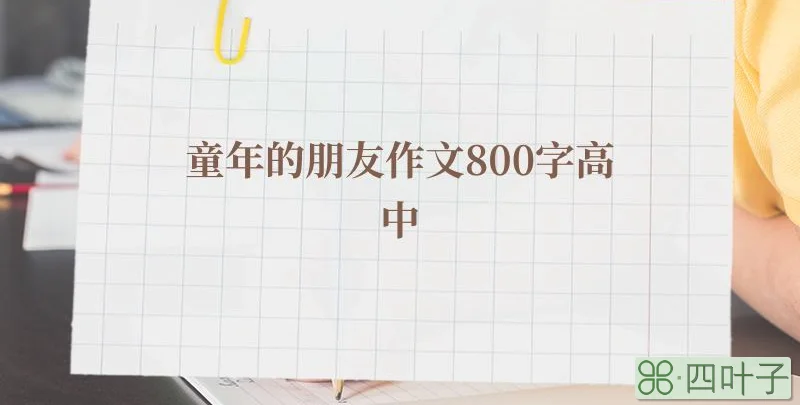 童年的朋友作文800字高
中
四叶子